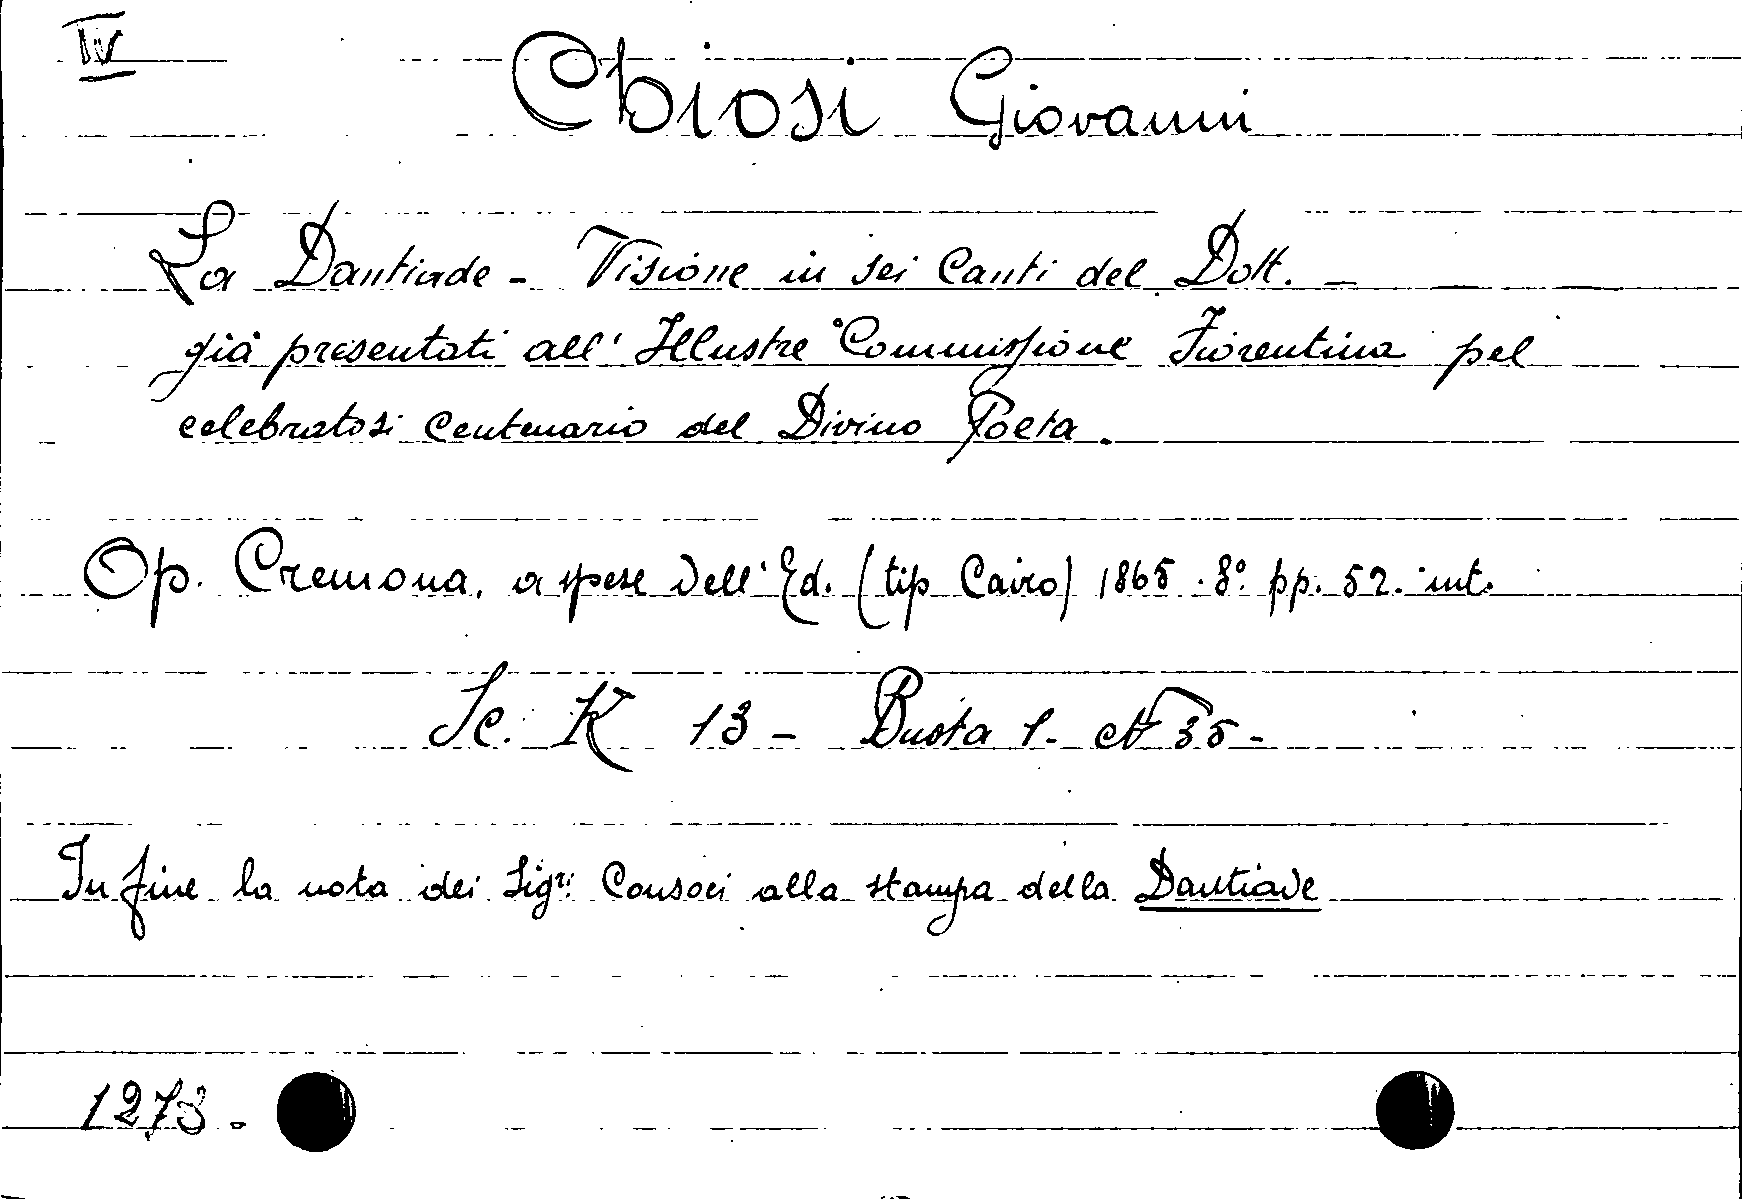 IV
Chiosi Giovanni
La Dantiade - Visione in sei Canti del Dott. -
già presentati all' Illustre Commissione Fiorentina pel
celebratosi Centenario del Divino Poeta.
Op. Cremona, a spese dell' Ed. (tip Cairo) 1865 . 8° pp. 52. int.
Sc. K 13 - Busta 1. N 35 -
In fine la nota dei Sigri Consoci alla stampa della Dantiade
1273 -